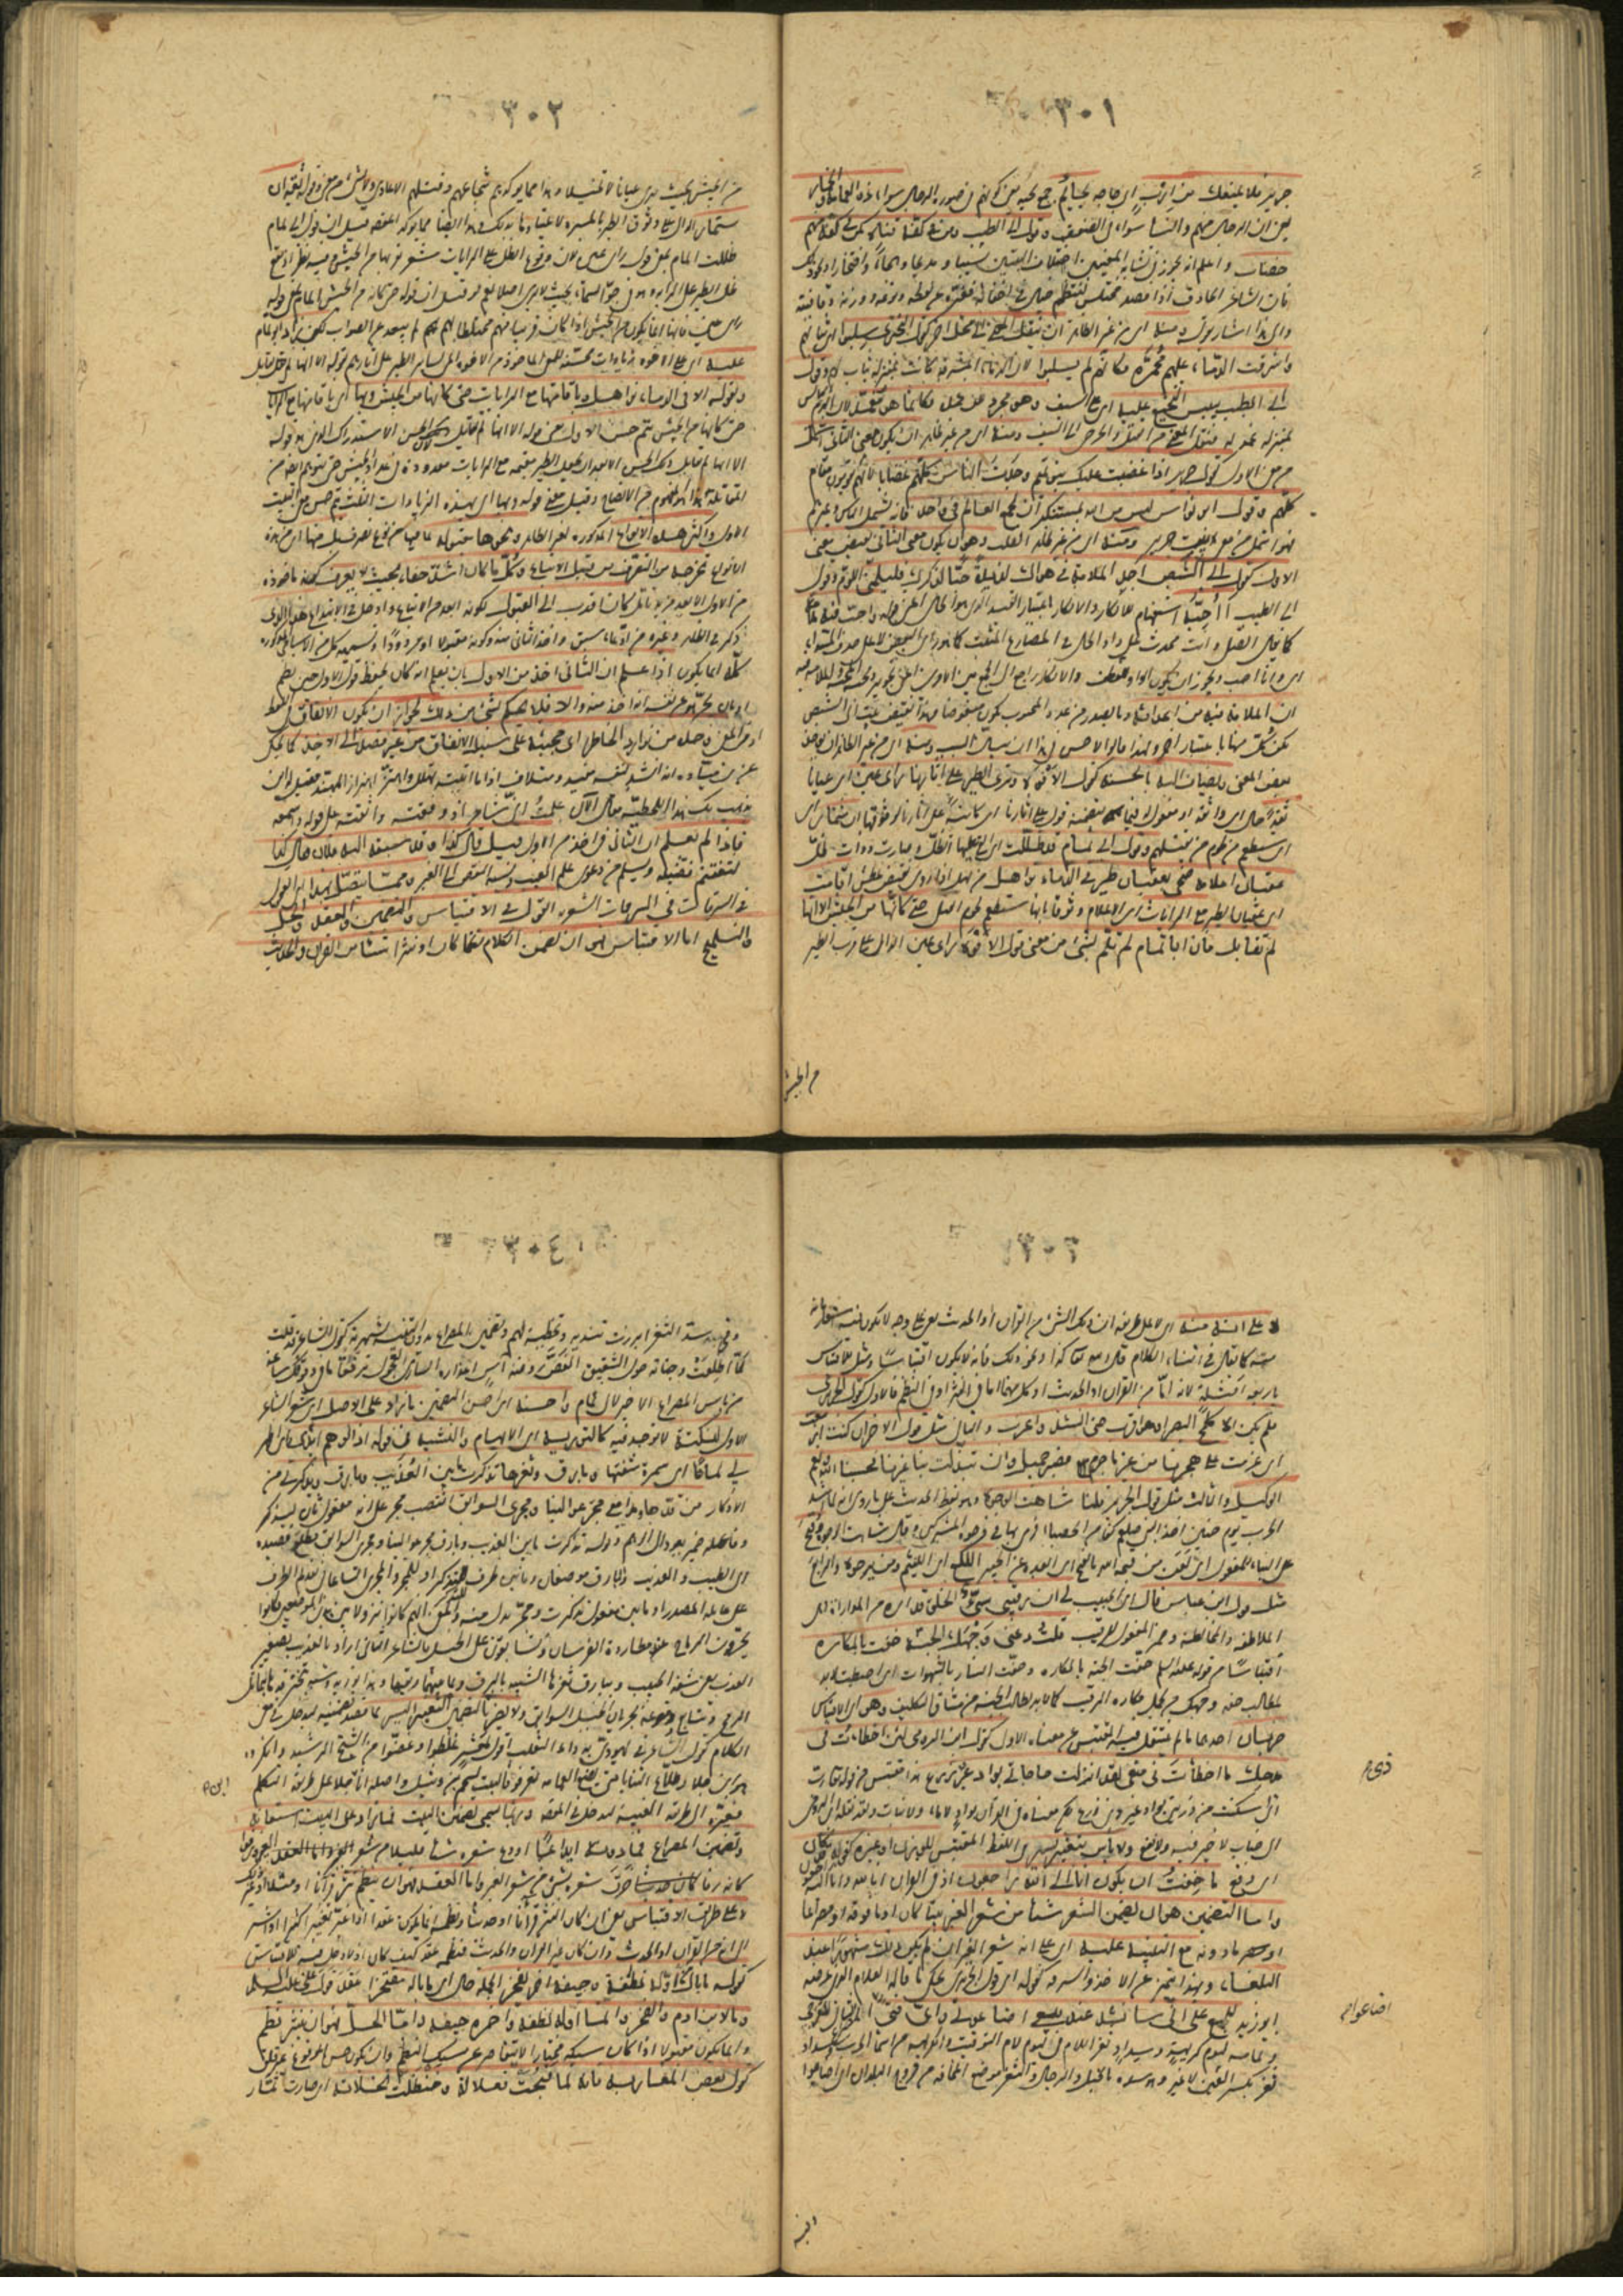 ٣٠١
جرير فلا يمنعك من ارب اى حاجة لحاهم جمع لحية يعنى كونهم فى صورة الرجال سواء ذو العمامة والخمار
يعنى ان الرجال منهم والنساء سواء فى الضعف وقول ابى الطيب ومن فى كفه قناة كمن فى كفه منهم
خضاب واعلم انه يجوز فى تشابه المعنيين اختلاف البيتين نسيبا ومديحا وهجاء وافتخارا ونحو ذلك
فان الشاعر الحاذق اذا قصد الى المعنى المختلس لينظمه احتال فى اخفائه فغيره عن لفظه ونوعه ووزنه وقافيته
والى هذا اشار بقوله ومنه اى من غير الظاهر ان ينقل المعنى الى محل آخر كقول البحترى سلبوا اى ثيابهم
واشرقت الدماء عليهم محمرة فكانهم لم يسلبوا لان الدماء المشرقة كانت بمنزلة ثياب لهم وقول
ابى الطيب يبس النجيع عليه اى على السيف وهو مجرد عن غمده فكانما هو مغمد لان الدم اليابس
بمنزلة غمد له فنقل المعنى من القتلى والجرحى الى السيف ومنه اى من غير الظاهر ان يكون معنى الثانى اشمل
من معنى الاول كقول جرير اذا غضبت عليك بنو تميم وجدت الناس كلهم غضابا لانهم يقومون مقام
كلهم وقول ابى نواس ليس من الله بمستنكر ان يجمع العالم فى واحد فانه يشمل الناس وغيرهم
فهو اشمل من معنى بيت جرير ومنه اى من غير الظاهر القلب وهو ان يكون معنى الثانى نقيض معنى
الاول كقول ابى الشيص اجد الملامة فى هواك لذيذة حبا لذكرك فليلمنى اللوم وقول
ابى الطيب أأحبه استفهام للانكار والانكار باعتبار القيد الذى هو الحال اعنى قوله واحب فيه ملامة
كما يقال اتصلى وانت محدث على واو الحال فى المضارع المثبت كما هو رأى البعض او على حذف المبتدأ
اى وانا احب ويجوز ان يكون الواو للعطف والانكار راجع الى الجمع بين الامرين اعنى محبته ومحبة الملامة فيه
ان الملامة فيه من اعدائه وما يصدر من عدو المحبوب يكون مبغوضا وهذا نقيض معنى بيت ابى الشيص
لكن كل منهما باعتبار آخر ولهذا قالوا الاحسن فى هذا ان يبين السبب ومنه اى من غير الظاهر ان يؤخذ
بعض المعنى ويضاف اليه ما يحسنه كقول الافوه وترى الطير على آثارنا رأى عين اى عيانا
ثقة حال اى واثقة او مفعول له مما يتضمنه قوله على آثارنا اى كائنة على آثارنا لوثوقها ان ستمار اى
اى ستطعم من لحوم من نقتلهم وقول ابى تمام قد ظللت اى القى عليها الظل وصارت ذوات ظل
عقبان اعلامه ضحى بعقبان طير فى الدماء نواهل من نهل اذا روى نقيض عطش اقامت
اى عقبان الطير مع الرايات اى الاعلام وثوقا بانها ستطعم لحوم القتلى حتى كانها من الجيش الا انها
لم تقاتل فان ابا تمام لم يلم بشئ من معنى قول الافوه رأى عين الدال على قرب الطير
من الجيش
٣٠٢
من الجيش بحيث ترى عيانا لا تخيلا وهذا مما يؤكد شجاعتهم وقتلهم الاعادى ولا بشئ من معنى قوله ثقة ان
ستمار الدال على وثوق الطير بالميرة لاعتيادها بذلك وهذا ايضا مما يؤكد المقصود قيل ان قول ابى تمام
ظللت المام بمعنى قوله رأى عين لان وقوع الظل على الرايات مشعر بقربها من الجيش وفيه نظر اذ قد يقع
ظل الطير على الراية وهو فى جو السماء بحيث لا يرى اصلا نعم لو قيل ان قوله حتى كانها من الجيش المام بمعنى قوله
رأى عين فانها انما تكون من الجيش اذا كانت قريبا منهم مختلطا بهم لم يبعد عن الصواب لكن زاد ابو تمام
عليه اى على الافوه زيادات محسنة للمعنى الماخوذ من الافوه اعنى تساير الطير على آثارهم بقوله الا انها لم تقاتل
وبقوله فى الدماء نواهل وباقامتها مع الرايات حتى كانها من الجيش وبها اى باقامتها مع الرايات
حتى كانها من الجيش يتم حسن الاول يعنى قوله الا انها لم تقاتل لانه لا يحسن الاستدراك الذى هو قوله
الا انها لم تقاتل ذلك الحسن الا بعد ان يجعل الطير مقيمة مع الرايات معدودة فى عداد الجيش حتى يتوهم انها من
المقاتلة هذا هو المفهوم من الايضاح وقيل معنى قوله وبها اى بهذه الزيادات الثلث يتم حسن معنى البيت
الاول واكثر هذه الانواع المذكورة لغير الظاهر ونحوها مقبولة لما فيها من نوع تصرف بل منها اى من هذه
الانواع ما يخرجه حسن التصرف من قبيل الاتباع وكل ما كان اشد خفاء بحيث لا يعرف كونه ماخوذا
من الاول الا بعد مزيد تامل كان اقرب الى القبول لكونه ابعد من الاتباع وادخل فى الابتداع هذا الذى
ذكر فى الظاهر وغيره من ادعاء سبق واخذ الثانى منه وكونه مقبولا او مردودا وتسمية كل بالاسامى المذكورة
كله انما يكون اذا علم ان الثانى اخذ من الاول بان يعلم انه كان يحفظ قول الاول حين نظم
او بان يخبر هو عن نفسه انه اخذ منه والا فلا يحكم بشئ من ذلك لجواز ان يكون الاتفاق فى اللفظ
او فى المعنى وحده من توارد الخاطر اى مجيئه على سبيل الاتفاق من غير قصد الى الاخذ كما يحكى
عن ابن ميادة انه انشد لنفسه مفيد ومتلاف اذا ما اتيته تهلل واهتز اهتزاز المهند فقيل له اين
يذهب بك هذا للحطيئة فقال الآن علمت انى شاعر اذ وافقته على قوله ولم اسمعه
فاذا لم يعلم ان الثانى اخذ من الاول قيل قال كذا وقد سبقه اليه فلان فقال كذا
ليغتنم فضيلة ويسلم من دعوى علم الغيب ونسبة النقص الى الغير ومما يتصل بهذا اى بالقول
فى السرقات الشعرية القول فى الاقتباس والتضمين والعقد والحل
والتلميح اما الاقتباس فهو ان يضمن الكلام نظما كان او نثرا شيئا من القرآن والحديث
٣٠٣
لا على انه منه اى لا على طريقة ان ذلك الشئ من القرآن او الحديث يعنى على وجه لا يكون فيه اشعار بانه
منه كما يقال فى اثناء الكلام قال الله تعالى كذا ونحو ذلك فانه لا يكون اقتباسا ومثل للاقتباس
باربعة امثلة لانه اما من القرآن او الحديث وكل منهما اما فى النثر او فى النظم فالاول كقول الحريرى
فلم يكن الا كلمح البصر او هو اقرب حتى انشد واغرب والثانى مثل قول الآخر ان كنت ازمعت
اى عزمت على هجرنا من غير ما جرم فصبر جميل وان تبدلت بنا غيرنا فحسبنا الله ونعم
الوكيل والثالث مثل قول الحريرى قلنا شاهت الوجوه وهو لفظ الحديث على ما روى انه لما اشتد
الحرب يوم حنين اخذ النبى صلعم كفا من الحصباء فرمى بها فى وجوه المشركين وقال شاهت الوجوه وقبح
على البناء للمفعول اى لعن من قبحه الله بالفتح اى ابعده عن الخير اللكع اى اللئيم ومن يرجوه والرابع
مثل قول ابن عباد قال اى الحبيب لى ان رقيبى سيئ الخلق فداره من المداراة وهى
الملاطفة والمخاتلة وضمير المفعول للرقيب قلت دعنى وجهك الجنة حفت بالمكاره
اقتباسا من قوله عليه السلام حفت الجنة بالمكاره وحفت النار بالشهوات اى احيطت
لطالب جنة وجهك من تحمل مكاره الرقيب كما لا بد لطالب الجنة من مشاق التكليف وهو اى الاقتباس
ضربان احدهما ما لم ينقل فيه المقتبس عن معناه الاصلى كقول ابن الرومى لئن اخطأت فى
مدحك ما اخطأت فى منعى لقد انزلت حاجاتى بواد غير ذى زرع هذا مقتبس من قوله تعالى رب
انى اسكنت من ذريتى بواد غير ذى زرع لكن معناه فى القرآن واد لا ماء فيه ولا نبات وقد نقله ابن الرومى
الى جناب لا خير فيه ولا نفع ولا بأس بتغيير يسير فى اللفظ المقتبس للوزن او غيره كقوله قد كان
اى وقع ما خفت ان يكونا انا الى الله راجعونا وفى القرآن انا لله وانا اليه راجعون
واما التضمين فهو ان يضمن الشعر شيئا من شعر الغير بيتا كان او ما فوقه او مصراعا
او ما دونه مع التنبيه عليه اى على انه من شعر الغير ان لم يكن ذلك مشهورا عند
البلغاء وبهذا يتميز عن الاخذ والسرقة كقوله اى قول الحريرى يحكى ما قاله الغلام الذى عرضه
ابو زيد للبيع على انى سانشد عند بيعى اضاعونى واى فتى اضاعوا المصراع الثانى للعرجى
وتمامه ليوم كريهة وسداد ثغر اللام فى ليوم لام التوقيت والكريهة من اسماء الحرب وسداد
ثغر بكسر السين لا غير وهو سده بالخيل والرجال والثغر موضع المخافة من فروج البلدان اى اضاعونى
ذى
اضاعوا
وفى
٣٠٤
وفى وقت الحرب وزمان سد الثغر
كما اطلعت وجناته حول الشقيق الغض روضة آس اعذاره السارى العجول ترفقا ما فى وقوفك ساعة
من باس المصراع الاخير لابى تمام واحسنه اى احسن التضمين ما زاد على الاصل اى شعر الشاعر
الاول لنكتة لا توجد فيه كالتورية اى الايهام والتشبيه فى قوله اذا الوهم ابدى اى اظهر
لى لماها اى سمرة شفتيها وثغرها تذكرت ما بين العذيب وبارق ويذكرنى من
الاذكار من قدها ومدامعى مجر عوالينا ومجرى السوابق انتصب مجر على انه مفعول ثان ليذكرنى
وفاعله ضمير يعود الى الوهم وقوله تذكرت ما بين العذيب وبارق مجر عوالينا ومجرى السوابق مطلع قصيدة
لابى الطيب والعذيب وبارق موضعان وما بين ظرف للتذكر او للمجر والمجرى اتساعا فى تقديم الظرف
على عامله المصدر او ما بين مفعول تذكرت ومجر بدل منه والمعنى انهم كانوا نزولا بين هذين الموضعين وكانوا
يجرون الرماح عند مطاردة الفرسان ويسابقون على الخيل فالشاعر الثانى اراد بالعذيب تصغير
العذب يعنى شفة الحبيب وببارق ثغرها الشبيه بالبرق وبما بينهما ريقها وهذا تورية وشبه تبختر قدها بتمايل
الرمح وتتابع دمعه بجريان الخيل السوابق ولا يضر فى التضمين التغيير اليسير لما قصد تضمينه ليدخل فى معنى
الكلام كقول الشاعر فى يهودى به داء الثعلب اقول لمعشر غلطوا وغضوا من الشيخ الرشيد وانكروه
هو ابن جلا وطلاع الثنايا متى يضع العمامة تعرفوه البيت لسحيم بن وثيل واصله انا ابن جلا على طريقة التكلم
فغيره الى طريقة الغيبة ليدخل فى المقصود وربما سمى تضمين البيت فما زاد على البيت استعانة
وتضمين المصراع فما دونه ايداعا كانه اودع شعره شيئا قليلا من شعر الغير ورفوا
كانه رفا خرق شعره بشئ من شعر الغير واما العقد فهو ان ينظم نثر قرآنا كان او حديثا او مثلا او غير ذلك
لا على طريق الاقتباس يعنى ان كان النثر قرآنا او حديثا فنظمه انما يكون عقدا اذا غير تغييرا كثيرا او اشير
الى انه من القرآن او الحديث وان كان غير القرآن والحديث فنظمه عقد كيف كان اذ لا دخل فيه للاقتباس
كقوله ما بال من اوله نطفة وجيفة آخره يفخر الجملة حال اى ما باله مفتخرا عقد قول على عليه السلام
وما لابن آدم والفخر وانما اوله نطفة وآخره جيفة واما الحل فهو ان ينثر نظم
وانما يكون مقبولا اذا كان سبكه مختارا لا يتقاصر عن سبك النظم وان يكون حسن الموقع غير قلق
كقول بعض المغاربة فانه لما قبحت فعلاته وحنظلت نخلاته اى صارت ثمار
ابن